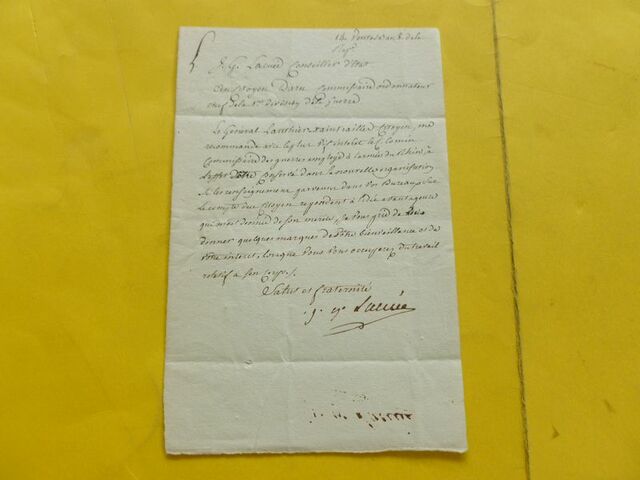 14 Ventose an 8 de la
Rep.
J. G. Lacuée Conseiller d'état
au Citoyen Daru Commissaire ordonnateur
chef de la 1re Division de la Guerre
Le Général Lauthier Xaintrailles Citoyen, me
recommande avec le plus vif intérêt le C.
Commissaire des guerres employé à l'armée du Rhin, à
l'effet d'être conservé dans la nouvelle organisation.
Si les renseignemens parvenus dans vos Bureaux sur
le compte de ce citoyen repondent à l'idée avantageuse
qu'on m'a donnée de son mérite, je vous prie de lui
donner quelques marques de votre bienveillance et de
votre interet, lorsque vous vous occuperez du travail
relatif à son corps.
Salut et fraternité
J. G. Lacuée